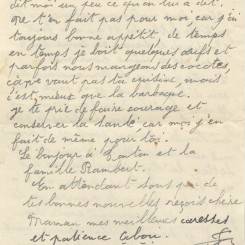 dit moi un peu ce qu'on t'a dit.
ne t'en fait pas pour moi, car j'ai
toujours bonne appétit, de temps
en temps je boit quelques œufs et
parfois nous mangeons des cocotes,
ça ne vaut pas ta cuisine mais
c'est mieux que la barbaque.
je te prie de faire courage et
conserver la santé, car moi j'en
fait de même pour toi.
Le bonjour à et la
famille Rambert.
En attendant sous peu de
tes bonnes nouvelles reçois chère
Maman mes meilleures caresses
et patience